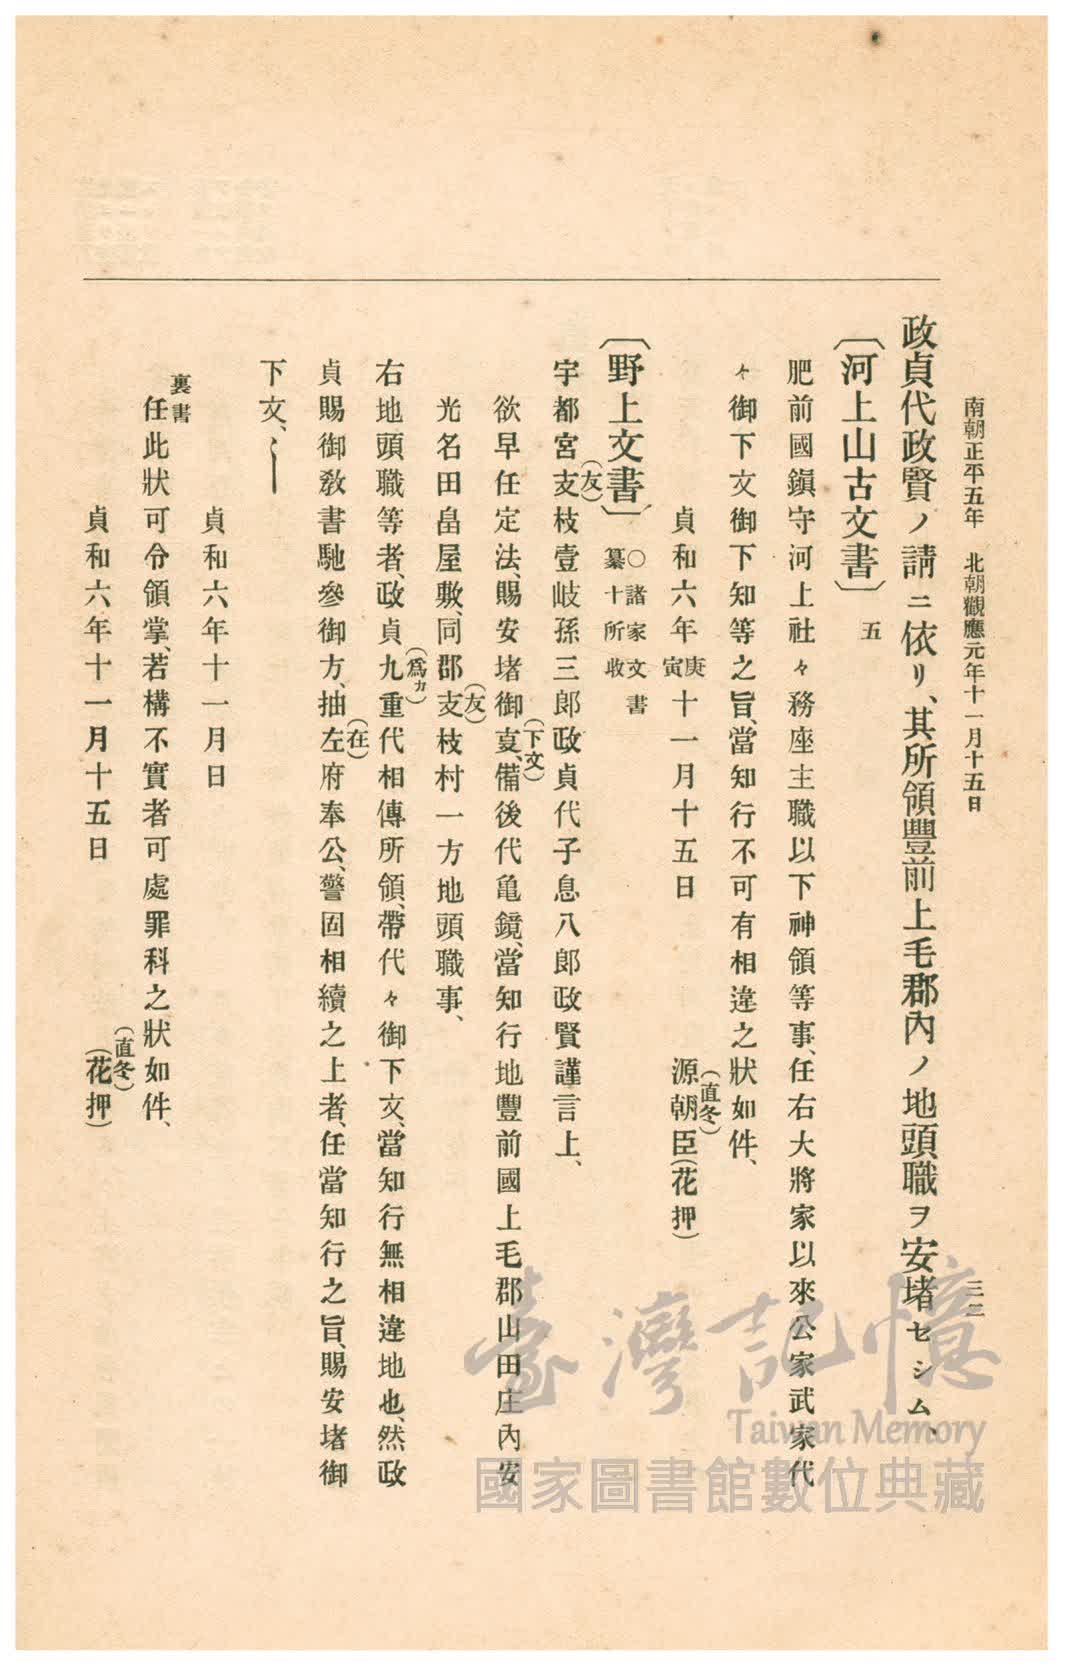 南朝正平五年　北朝觀應元年十一月十五日
三二
政貞代政賢ノ請ニ依リ、其所領豐前上毛郡內ノ地頭職ヲ安堵セシム、
〔河上山古文書〕五
肥前國鎭守河上社々務座主職以下神領等事、任右大將家以來公家武家代
々御下文御下知等之旨、當知行不可有相違之狀如件、
貞和六年庚寅十一月十五日
源朝臣(直冬)(花押)
〔野上文書〕○諸家文書纂十所收
宇都宮支(友)枝壹岐孫三郎政貞代子息八郎政賢謹言上、
欲早任定法、賜安堵御㕝(下文)、備後代亀鏡、當知行地豐前國上毛郡山田庄內安
光名田畠屋敷、同郡支(友)枝村一方地頭職事、
右地頭職等者、政貞九(爲カ)重代相傳所領、帶代々御下文、當知行無相違地也、然政
貞賜御敎書馳參御方、抽左(在)府奉公、警固相續之上者、任當知行之旨、賜安堵御
下文、〻
貞和六年十一月日
裏書
任此狀可令領掌、若構不實者可處罪科之狀如件、
貞和六年十一月十五日　(直冬)(花押)
臺灣記憶
Taiwan Memory
國家圖書館數位典藏